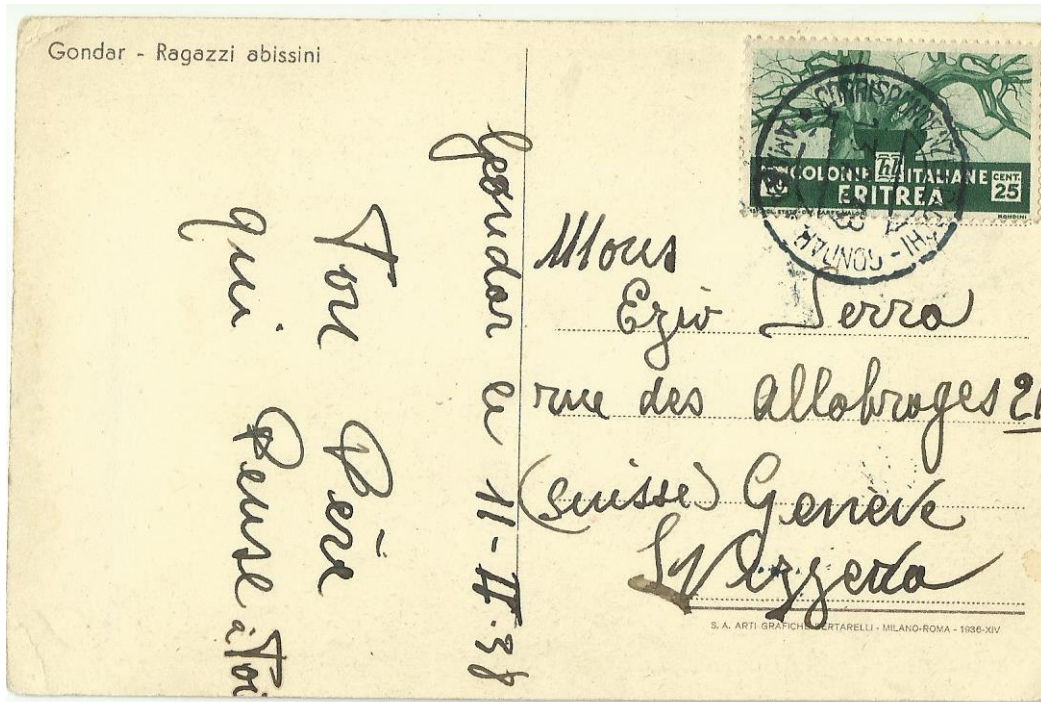 Gondar - Ragazzi abissini
Gondar le 11-II-38
Ton Père
qui Pense à Toi
COLONIE ITALIANE
CENT. 25
ERITREA
MONDINI
CORRISPONDENZE
GONDAR
Mons
Ezio Serra
rue des Allobroges 21
(suisse) Genève
Svizzera
S. A. ARTI GRAFICHE BERTARELLI - MILANO-ROMA - 1936-XIV